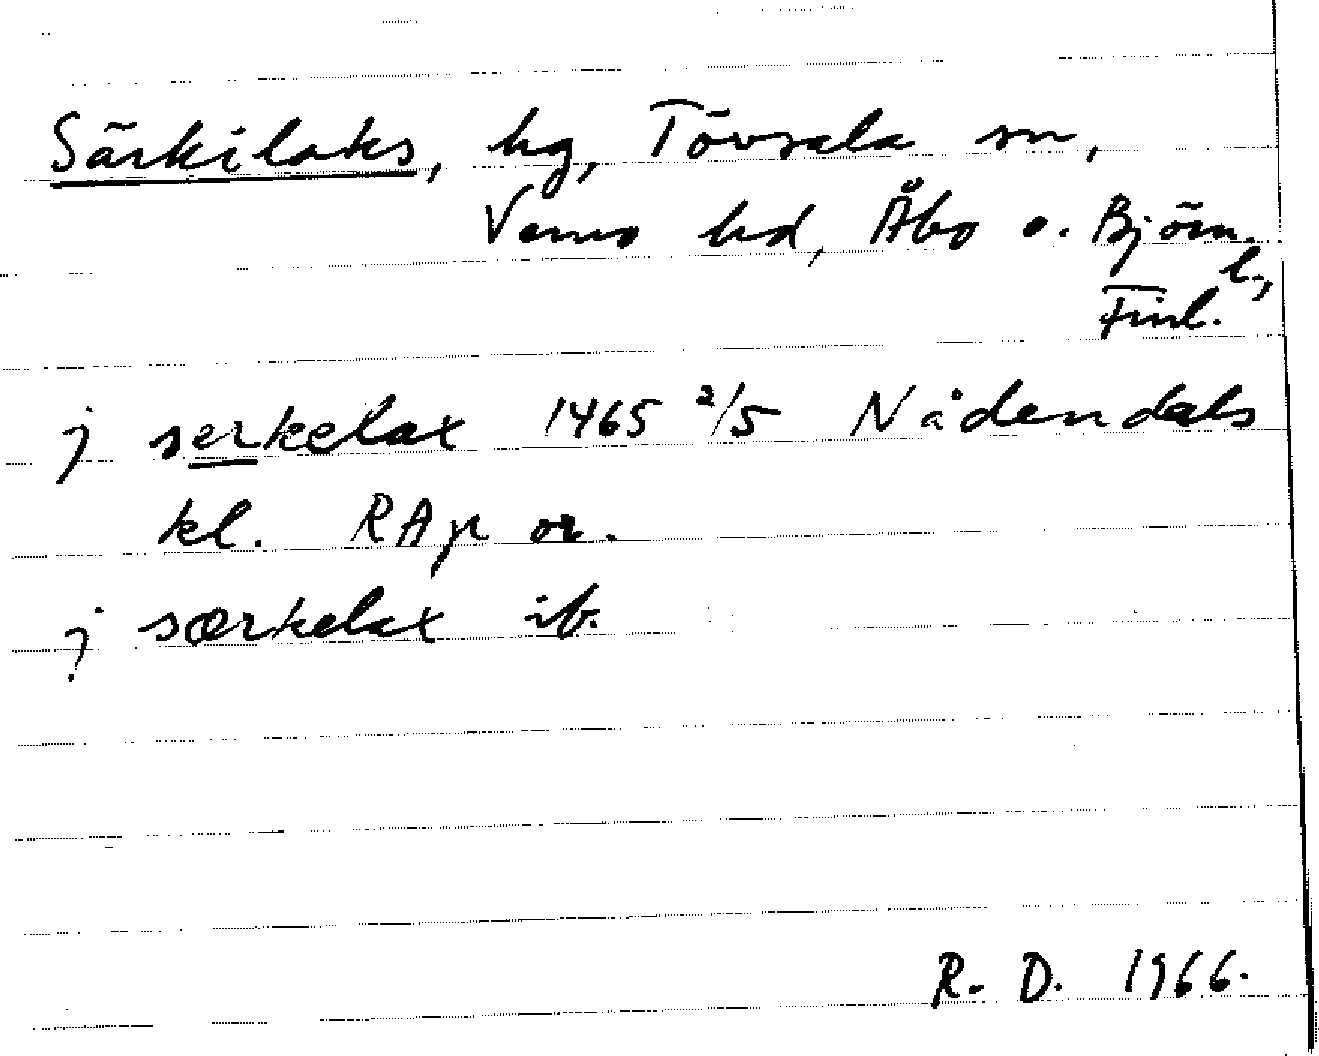 Särkilaks, hg, Tövsala sn,
Vemo hd, Åbo o. Björn.
l.,
Finl.
j serkelax 1465 2/5 Nådendals
kl. RAp or.
j særkelax ib.
R. D. 1966.